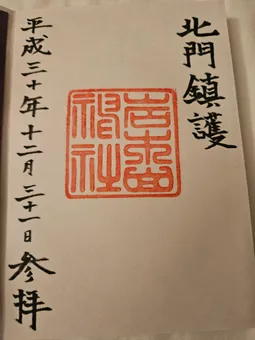 北門鎮護
岩木山
神社
平成三十年十二月三十一日参拝